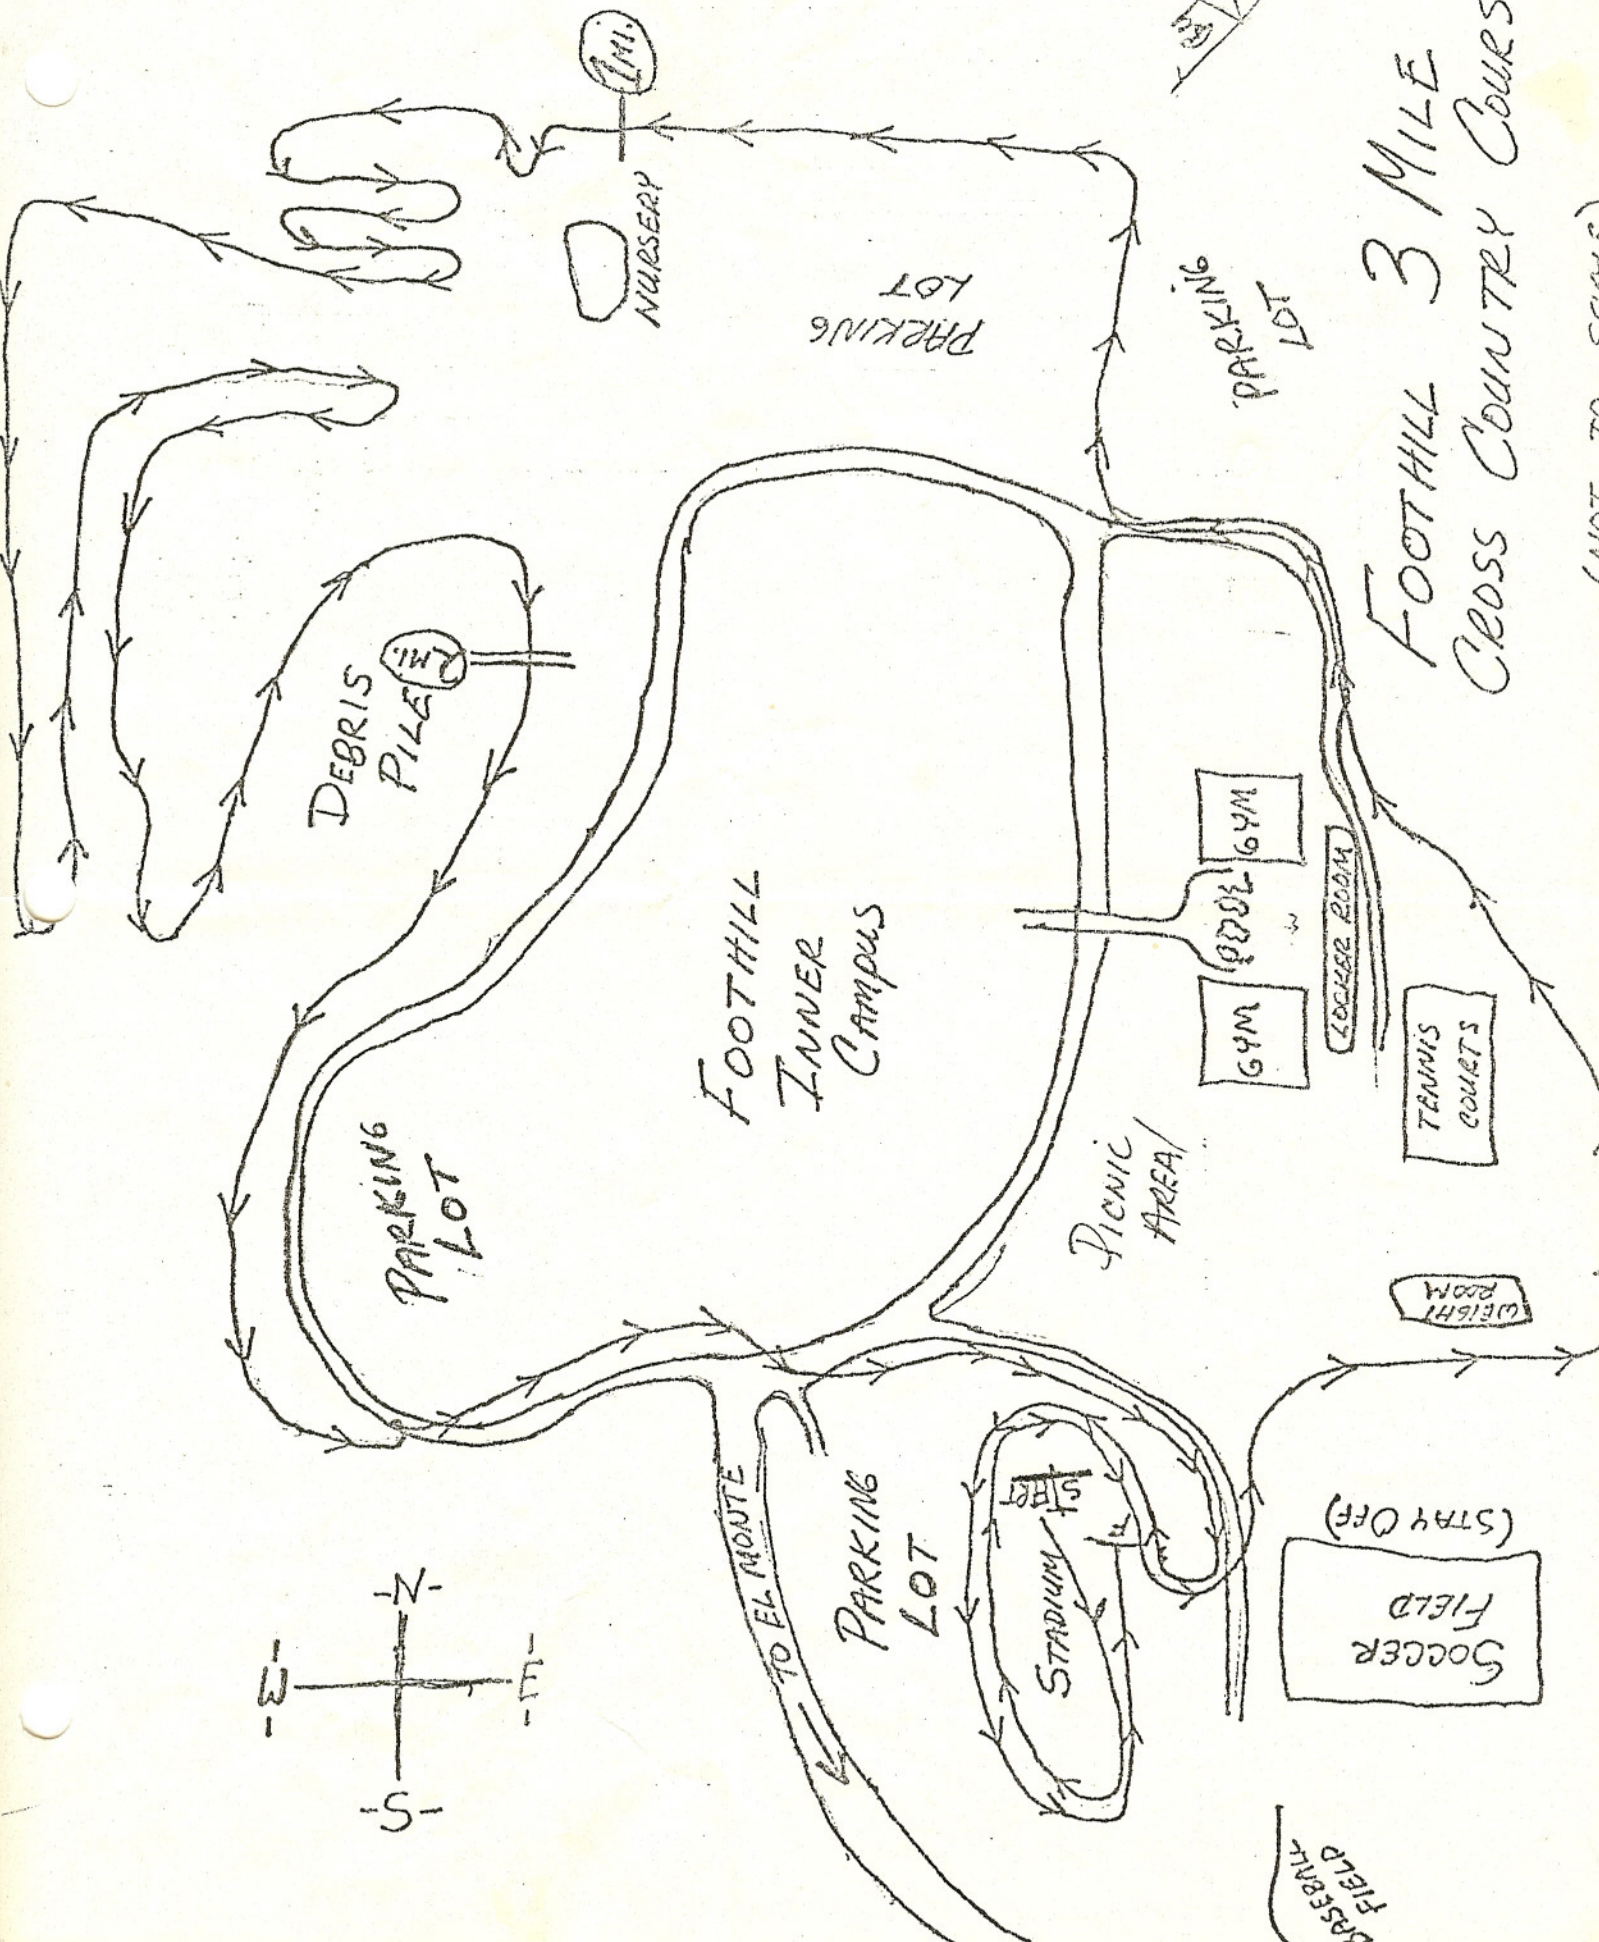 FOOTHILL 3 MILE
CROSS COUNTRY COURS
(NOT TO SCALE)
1 MI.
NURSERY
PARKING
LOT
PARKING
LOT
DEBRIS
PILE
2 MI.
FOOTHILL
INNER
CAMPUS
GYM
POOL
GYM
LOCKER ROOM
TENNIS
COURTS
PICNIC
AREA
WEIGHT
ROOM
PARKING
LOT
TO EL MONTE
PARKING
LOT
START
STADIUM
(STAY OFF)
SOCCER
FIELD
BASEBALL
FIELD
-N-
-W-
-E-
-S-